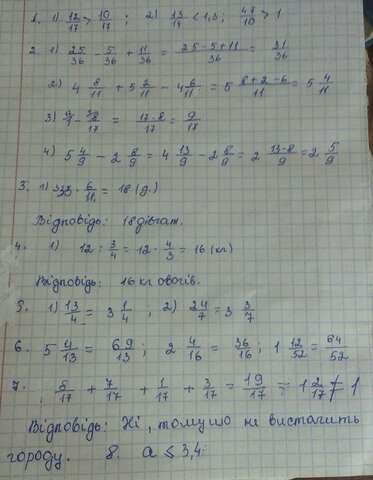 1. 1) 12/17 > 10/17 ; 2) 13/14 < 1,3 ; 47/10 > 1
2. 1) 25/36 - 5/36 + 11/36 = (25-5+11)/36 = 31/36
2) 4 8/11 + 5 2/11 - 4 6/11 = 5 (8+2-6)/11 = 5 4/11
3) - 8/17 = (17-8)/17 = 9/17
4) 5 4/9 - 2 8/9 = 4 13/9 - 2 8/9 = 2 (13-8)/9 = 2 5/9
3. 1) 33 · 6/11 = 18 (д.)
Відповідь: 18 дівчат.
4. 1) 12 : 3/4 = 12 · 4/3 = 16 (кг)
Відповідь: 16 кг овочів.
5. 1) 13/4 = 3 1/4 ; 2) 24/7 = 3 3/7
6. 5 4/13 = 69/13 ; 2 4/16 = 36/16 ; 1 12/52 = 64/52
7. 8/17 + 7/17 + 1/17 + 3/17 = 19/17 = 1 2/17 ≠ 1
Відповідь: Ні, тому що не вистачить
городу. 8. a ≤ 3,4.